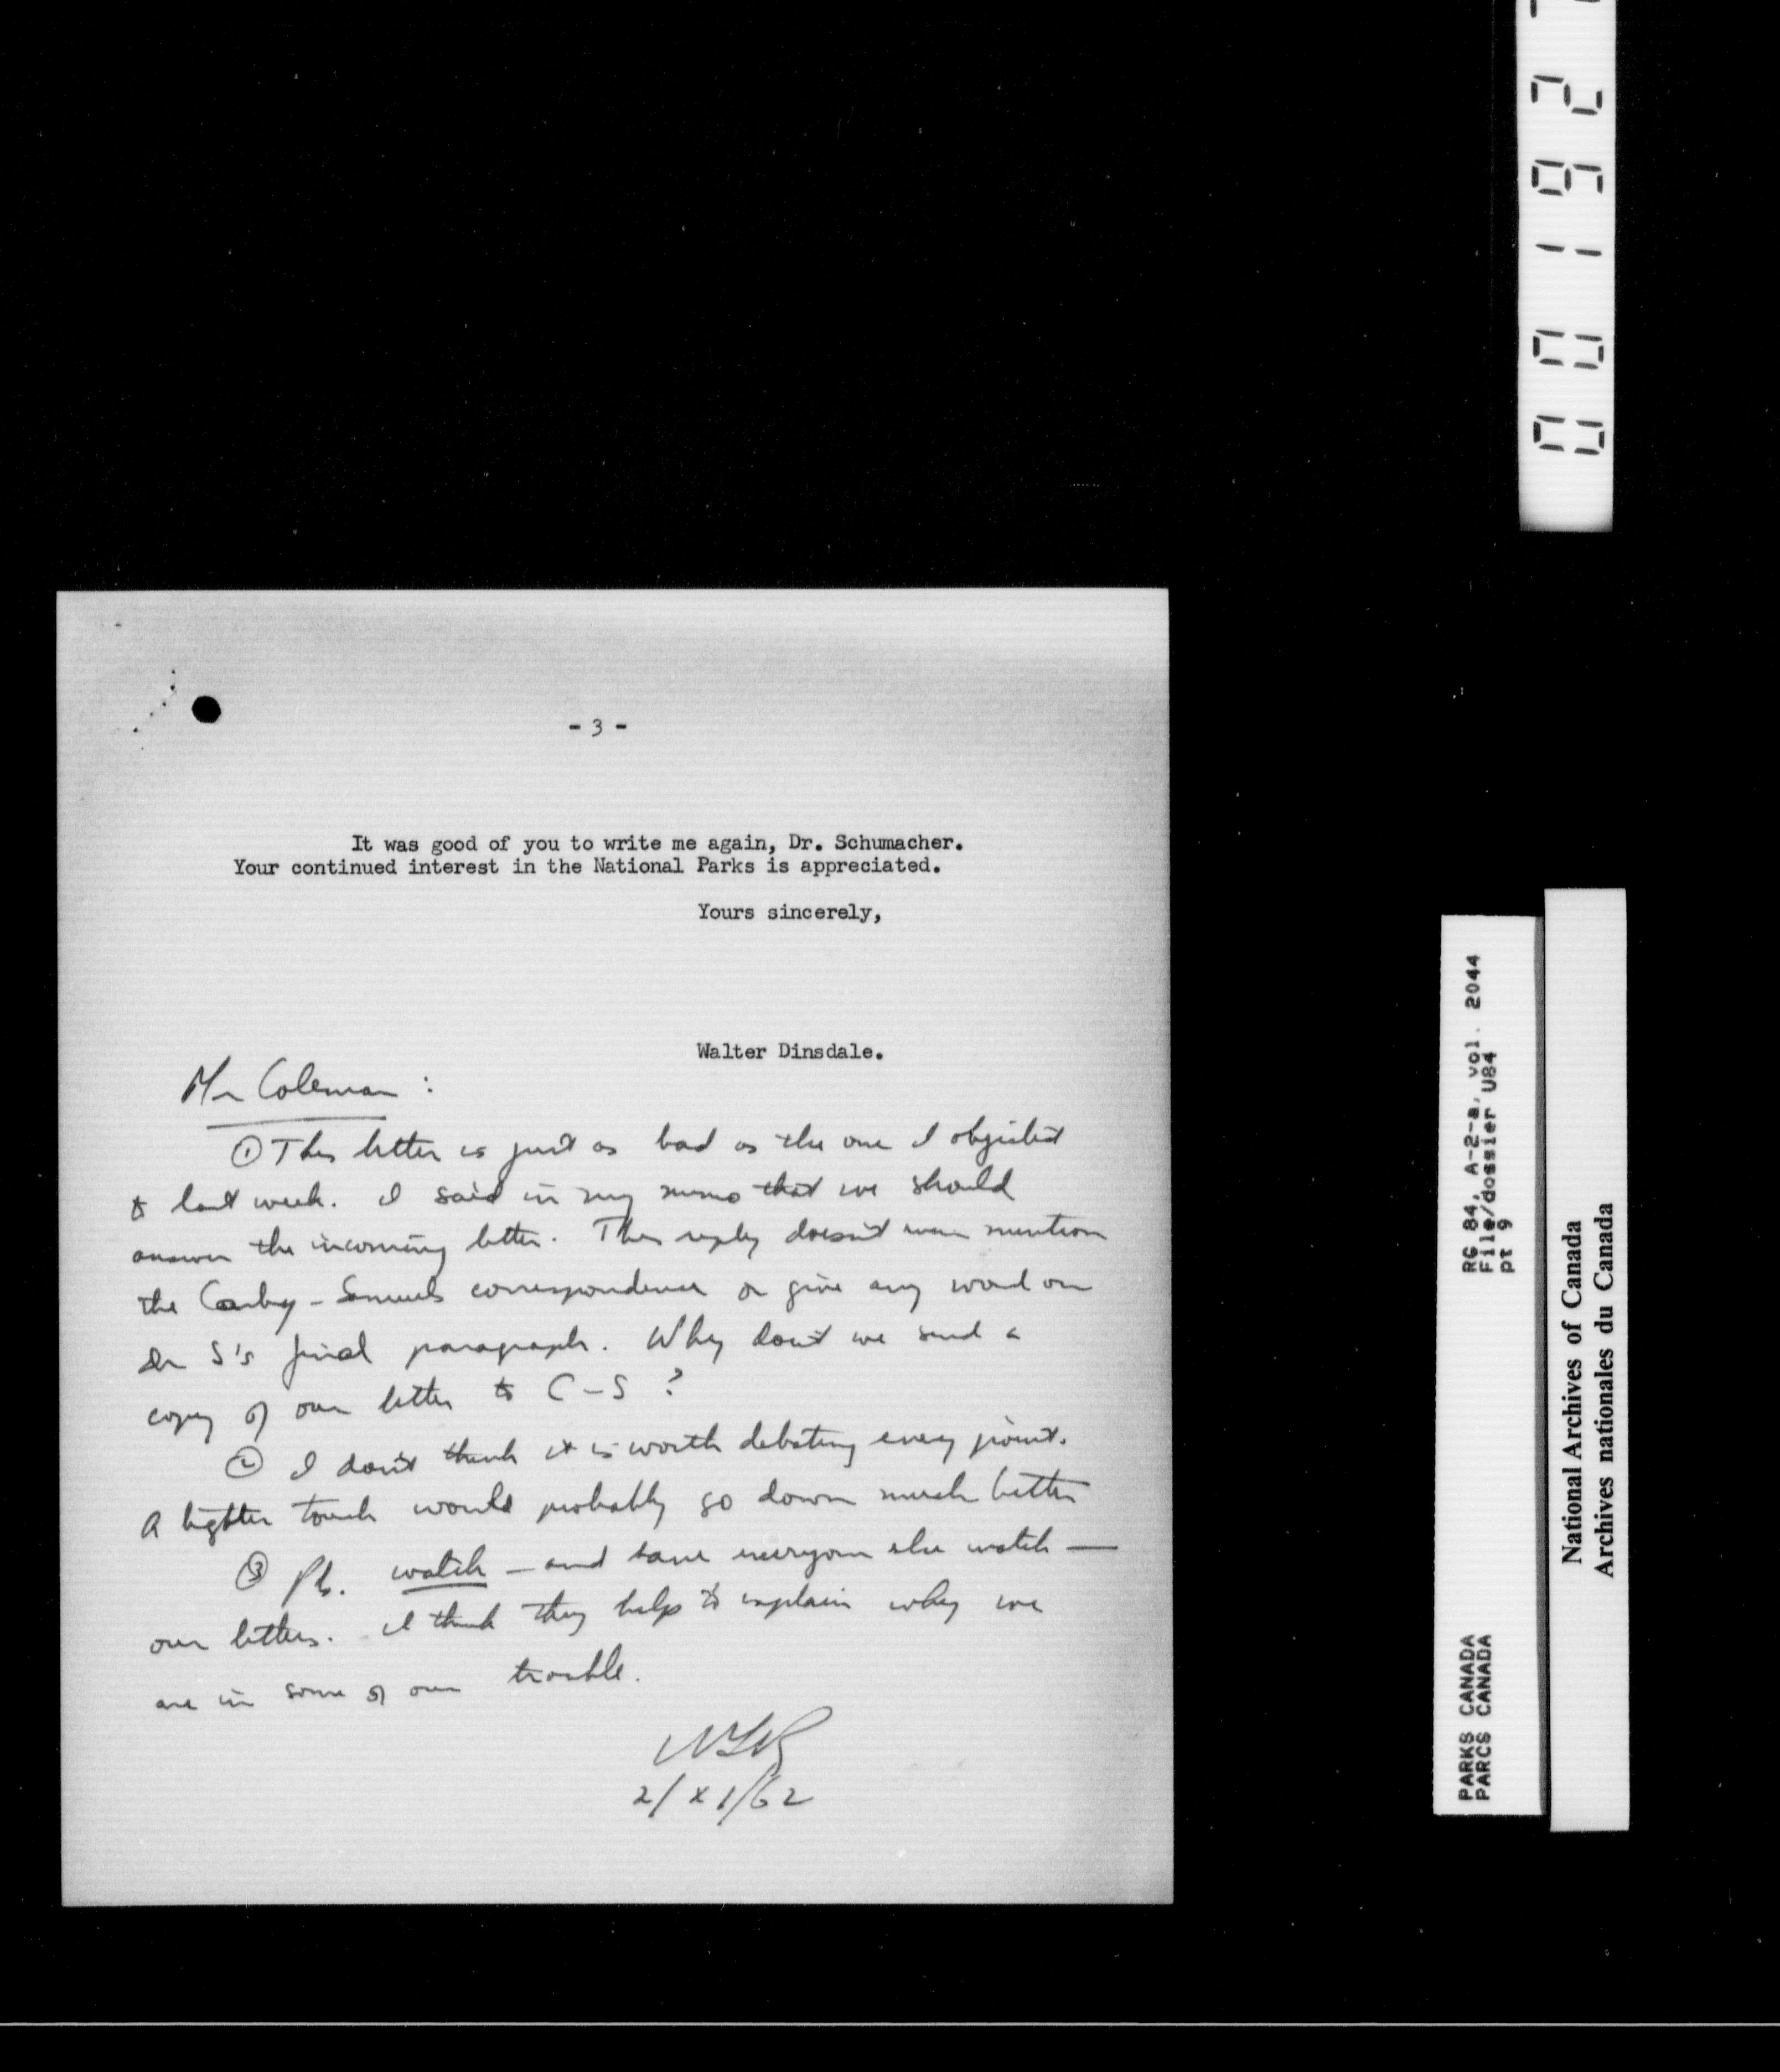 - 3 -
It was good of you to write me again, Dr. Schumacher.
Your continued interest in the National Parks is appreciated.
Yours sincerely,
Walter Dinsdale.
Mr Coleman :
① This letter is just as bad as the one I objected
to last week. I said in my memo that we should
answer the incoming letter. This reply doesn't even mention
the Canby-Samuels correspondence or give any word on
Dr S's final paragraph. Why don't we send a
copy of our letter to C-S ?
② I don't think it is worth debating every point.
A lighter touch would probably go down much better
③ Pls. watch — and have everyone else watch —
our letters. I think they help to explain why we
are in some of our trouble.
2/XI/62
00192
RG 84, A-2-a, vol. 2044
File/dossier U84
pt 9
PARKS CANADA
PARCS CANADA
National Archives of Canada
Archives nationales du Canada